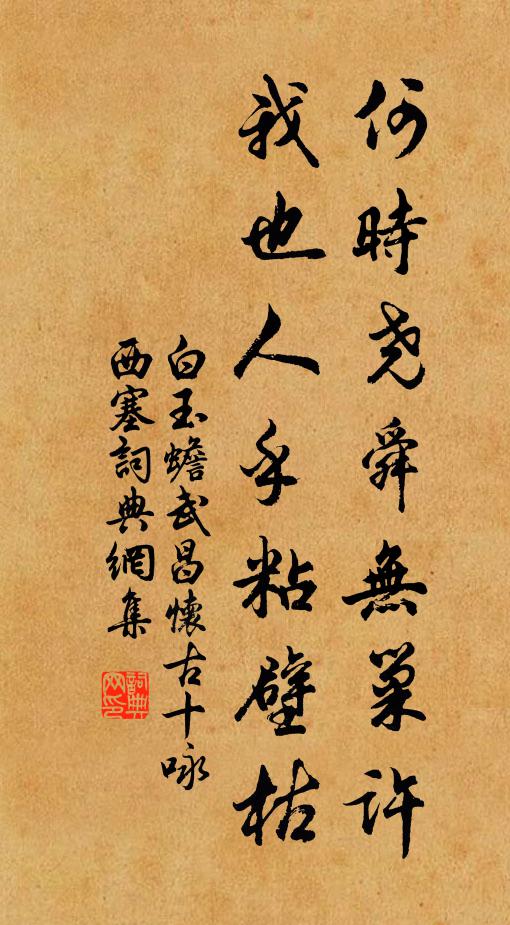 何時尧舜無巢許
我也人乎粘壁枯
白玉蟾武昌懷古十咏
西塞詞典網集
詞典网印